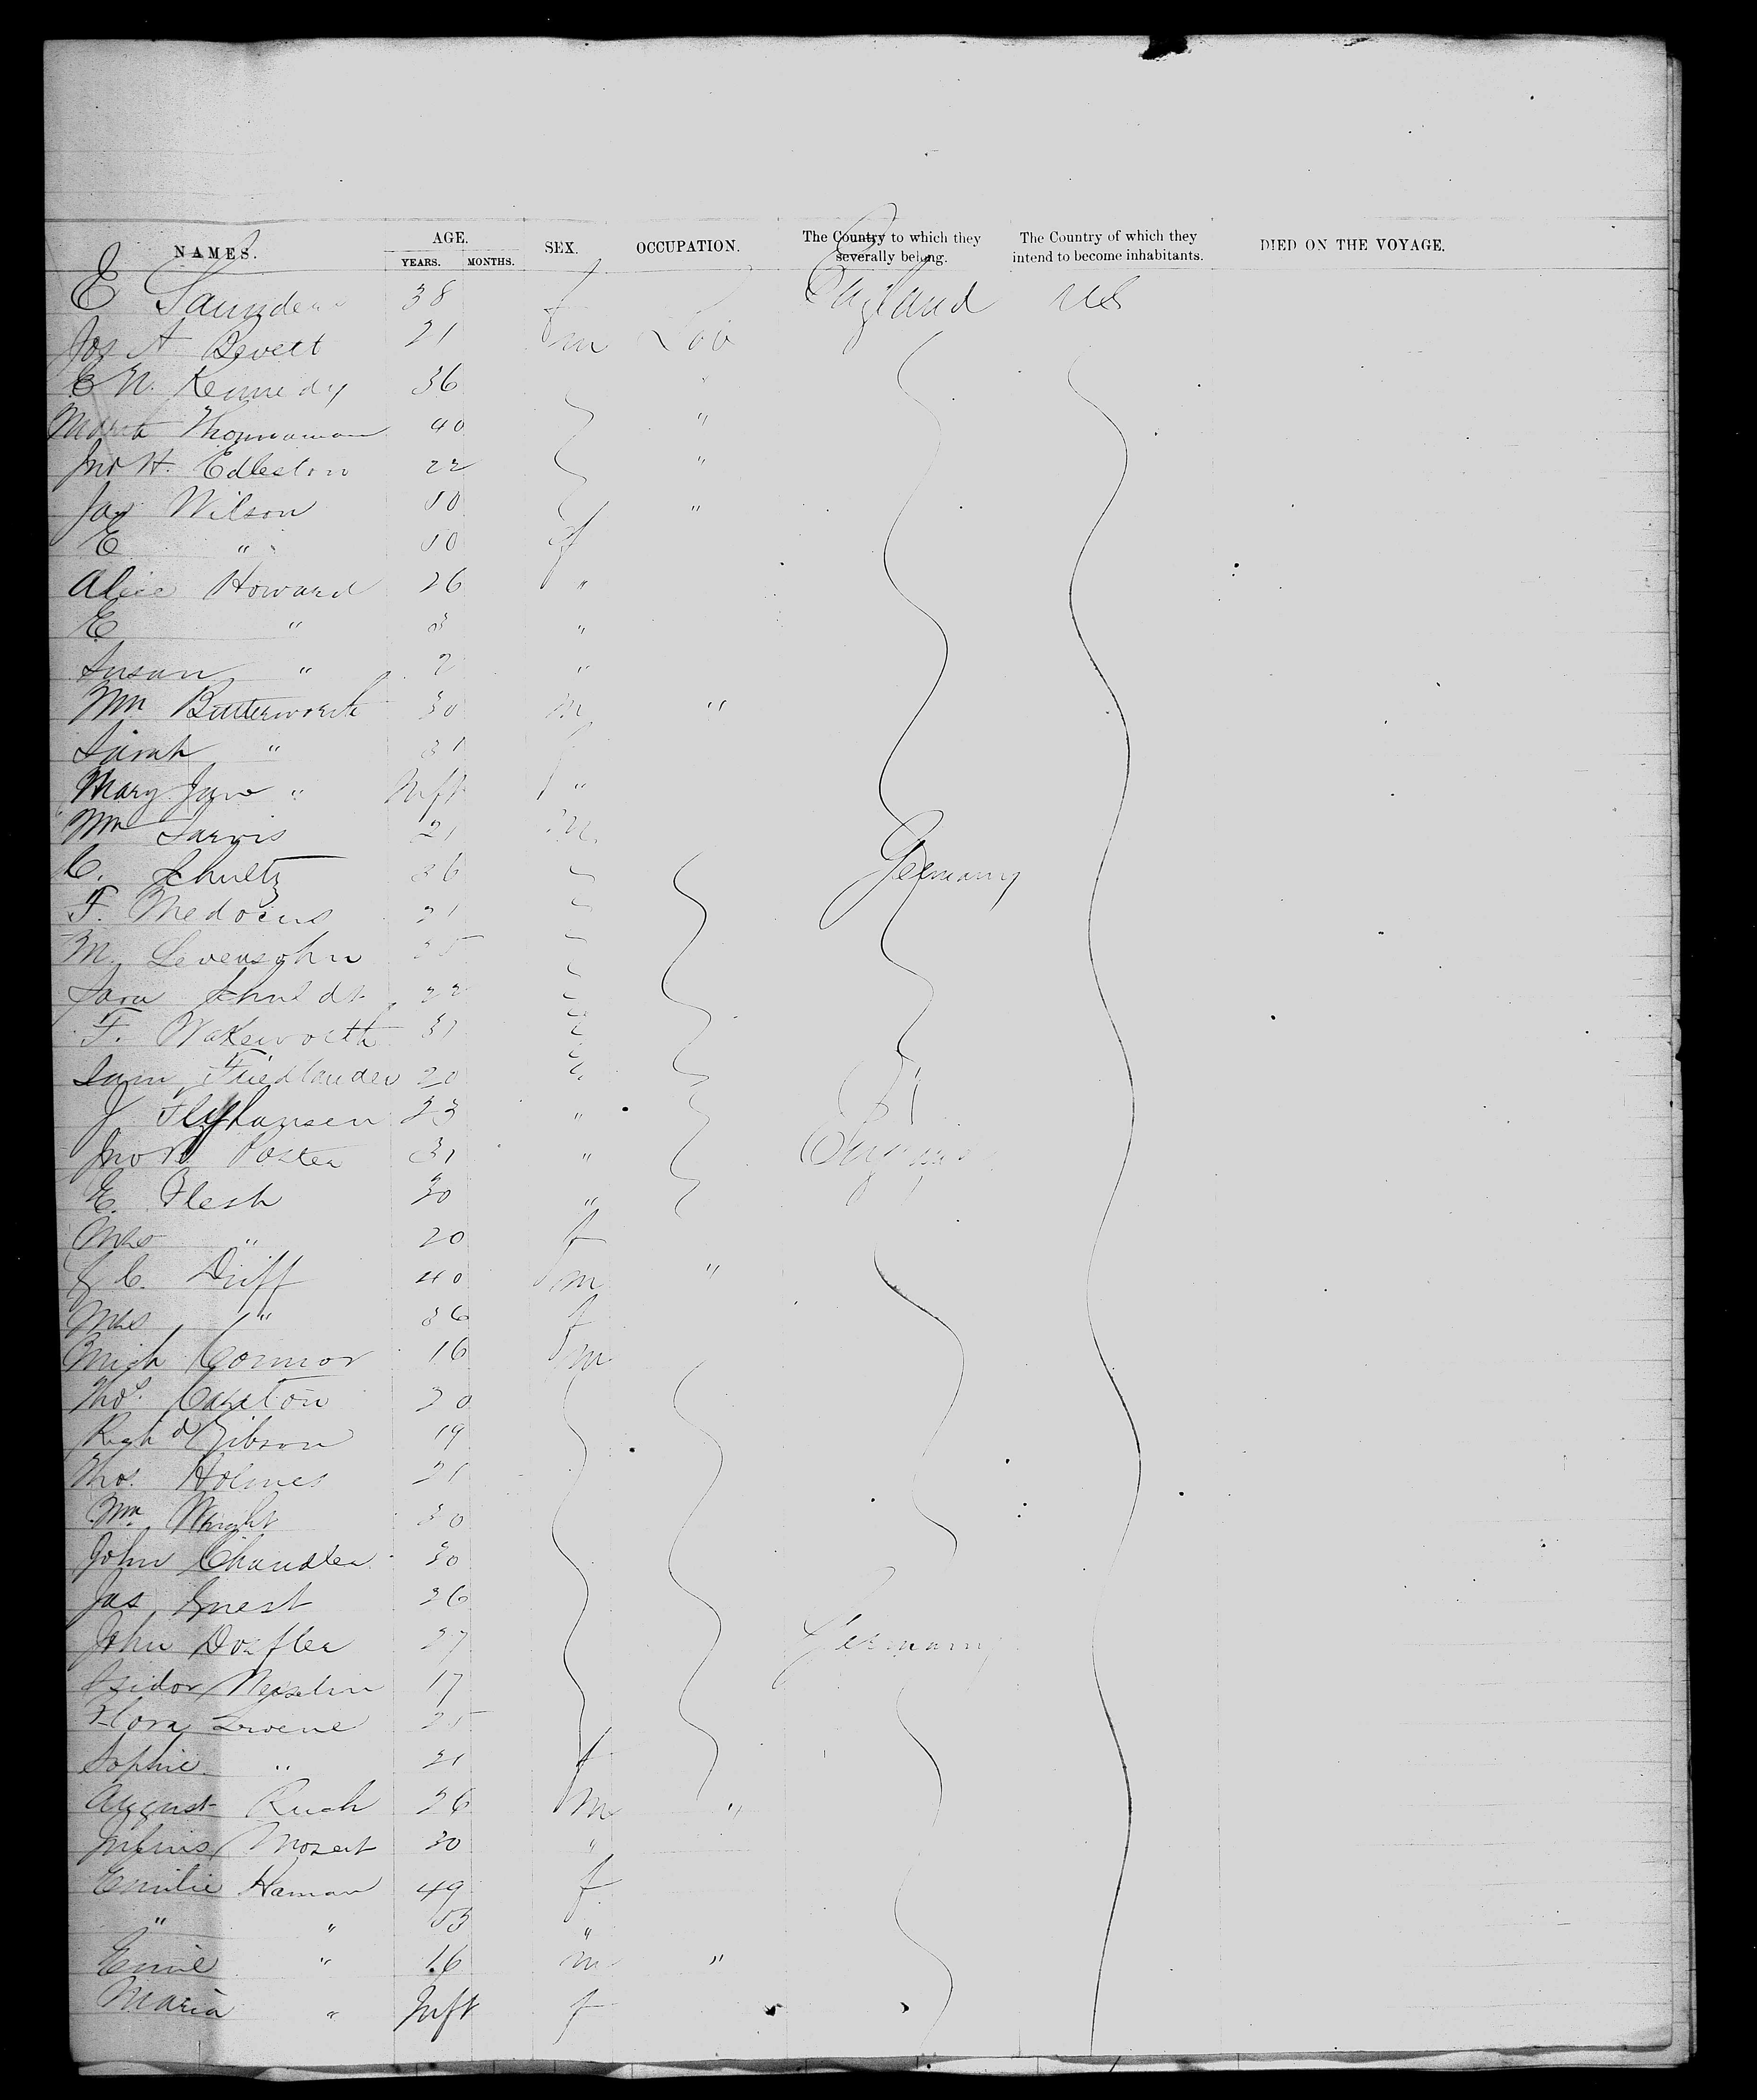 NAMES. AGE. SEX. OCCUPATION. The Country to which they severally belong. The Country of which they intend to become inhabitants. DIED ON THE VOYAGE.
YEARS. MONTHS.
E Saunders 38 f England US
Jos A. Bevett 21 m Lab
E N. Kennedy 36 "
40 "
Jno H. Edleston 22 "
Jas Wilson 50 "
E " 50 f
Alice Howard 26 "
E " 3 "
Susan " 2 "
Wm Butterworth 30 m "
Sarah " 31
Mary Jane " Inft "
Wm Jarvis 21 m
C. Schultz 36 Germany
F. Medocus 21
M. Levensohn 25
Sara Schuldt 22
F. Wakeworth 31
Sam Friedlander 20
J 23 "
Jno R Porter 31 " England
E. Flesh 30 "
Mrs " 20 f
J C. Duff 40 m "
Mrs " 36 f
Mich Connor 16 m
Thos. Carlton 30
Richd Gibson 19
Thos. Holmes 21
Wm Wright 30
John Chandler 30
Jas Guest 26
John Doefler 27 Germany
Isidor 17
Flora Lewene 25
Sophie " 21 f
August Ruch 26 m "
Julius Mozart 30 "
Emilie Haman 49 f
" " 53 "
Emil " 16 m "
Maria " Inft f